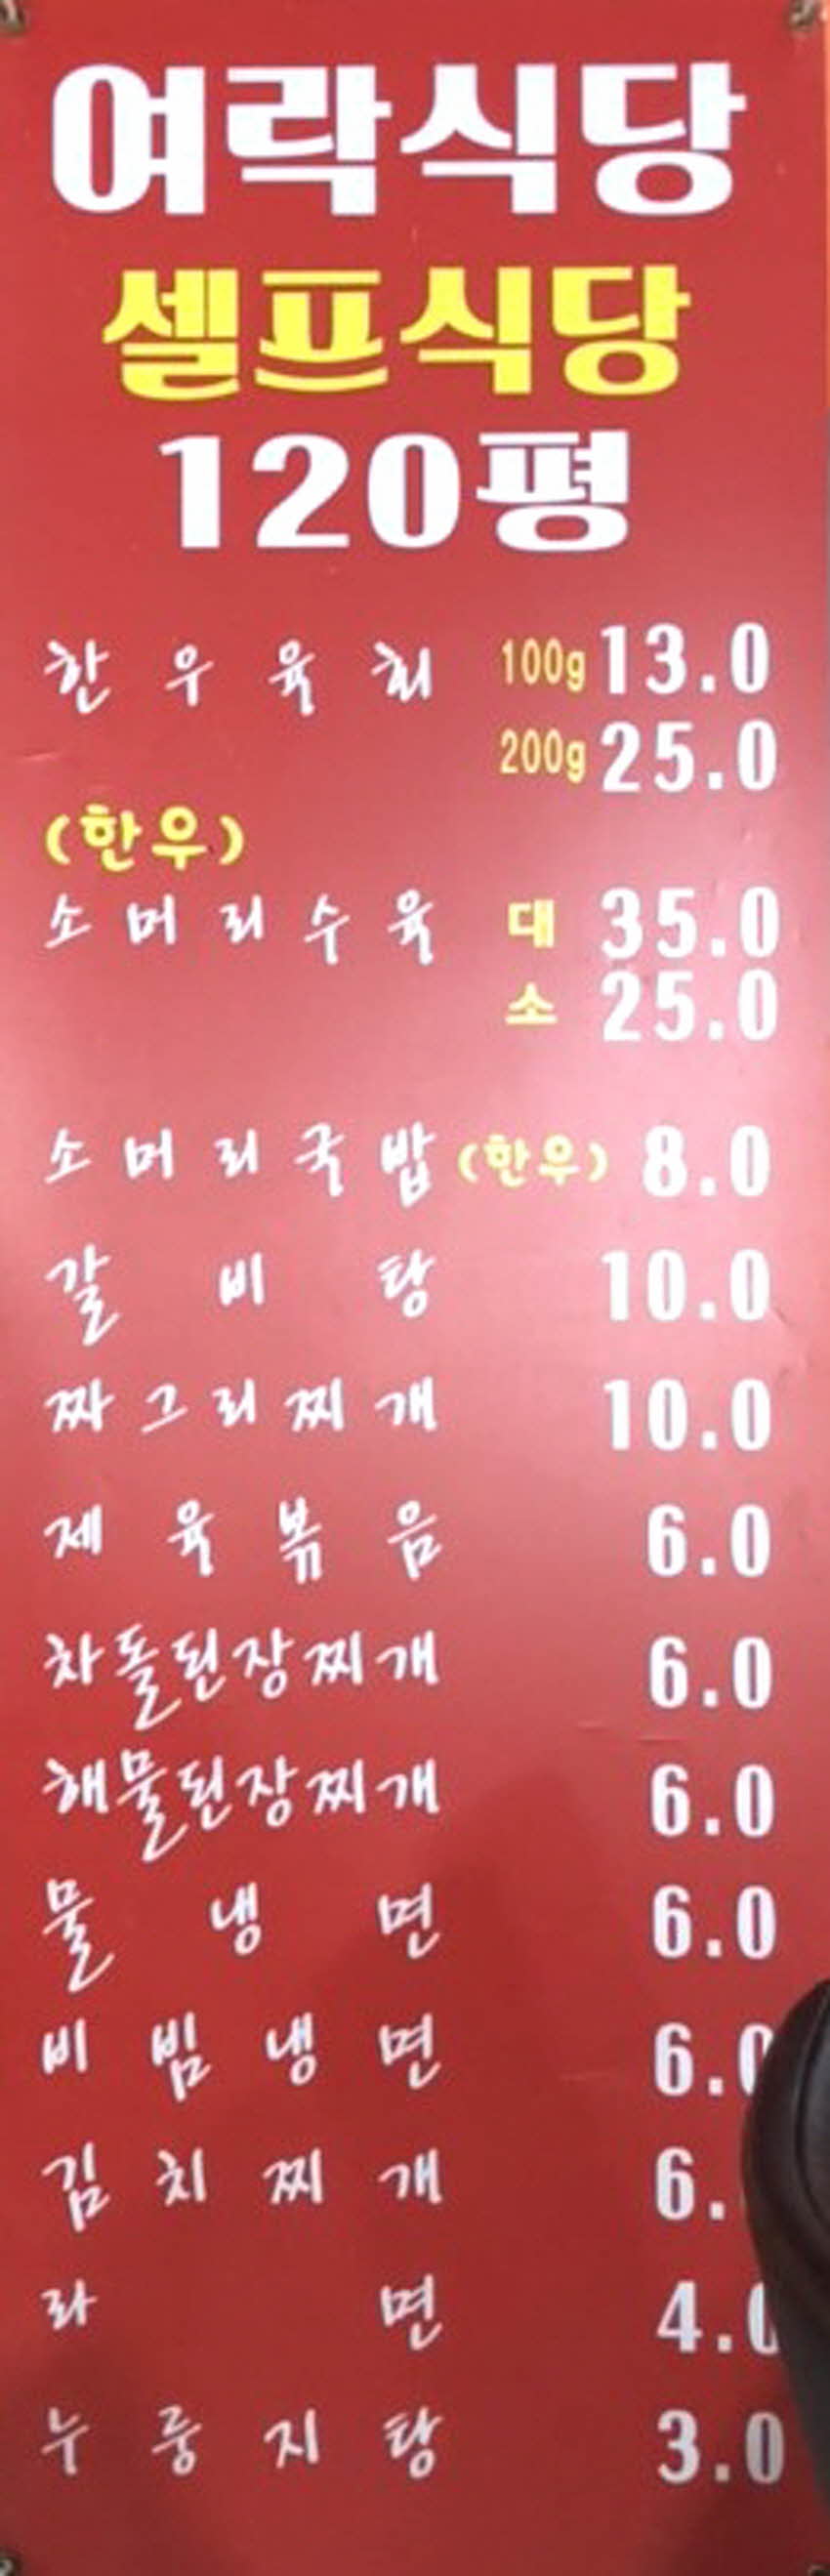 여락식당
셀프식당
120평
한우육회 100g 13.0
200g 25.0
(한우)
소머리수육 대 35.0
소 25.0
소머리국밥 (한우) 8.0
갈비탕 10.0
짜그리찌개 10.0
제육볶음 6.0
차돌된장찌개 6.0
해물된장찌개 6.0
물냉면 6.0
비빔냉면 6.0
김치찌개 6.
라면 4.0
누룽지탕 3.0